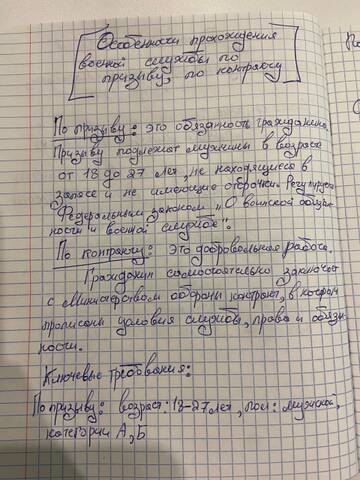 Особенности прохождения
военной службы по
призыву, по контракту
По призыву: это обязанность гражданина.
Призыву подлежат мужчины в возрасте
от 18 до 27 лет, не находящиеся в
запасе и не имеющие отсрочки. Регулируется
Федеральным законом "О воинской обязан
ности и военной службе".
По контракту: Это добровольная работа.
Гражданин самостоятельно заключает
с Министерством обороны контракт, в котором
прописаны условия службы, права и обязан
ности.
Ключевые требования:
По призыву: возраст: 18-27 лет, пол: мужской,
категории А, Б